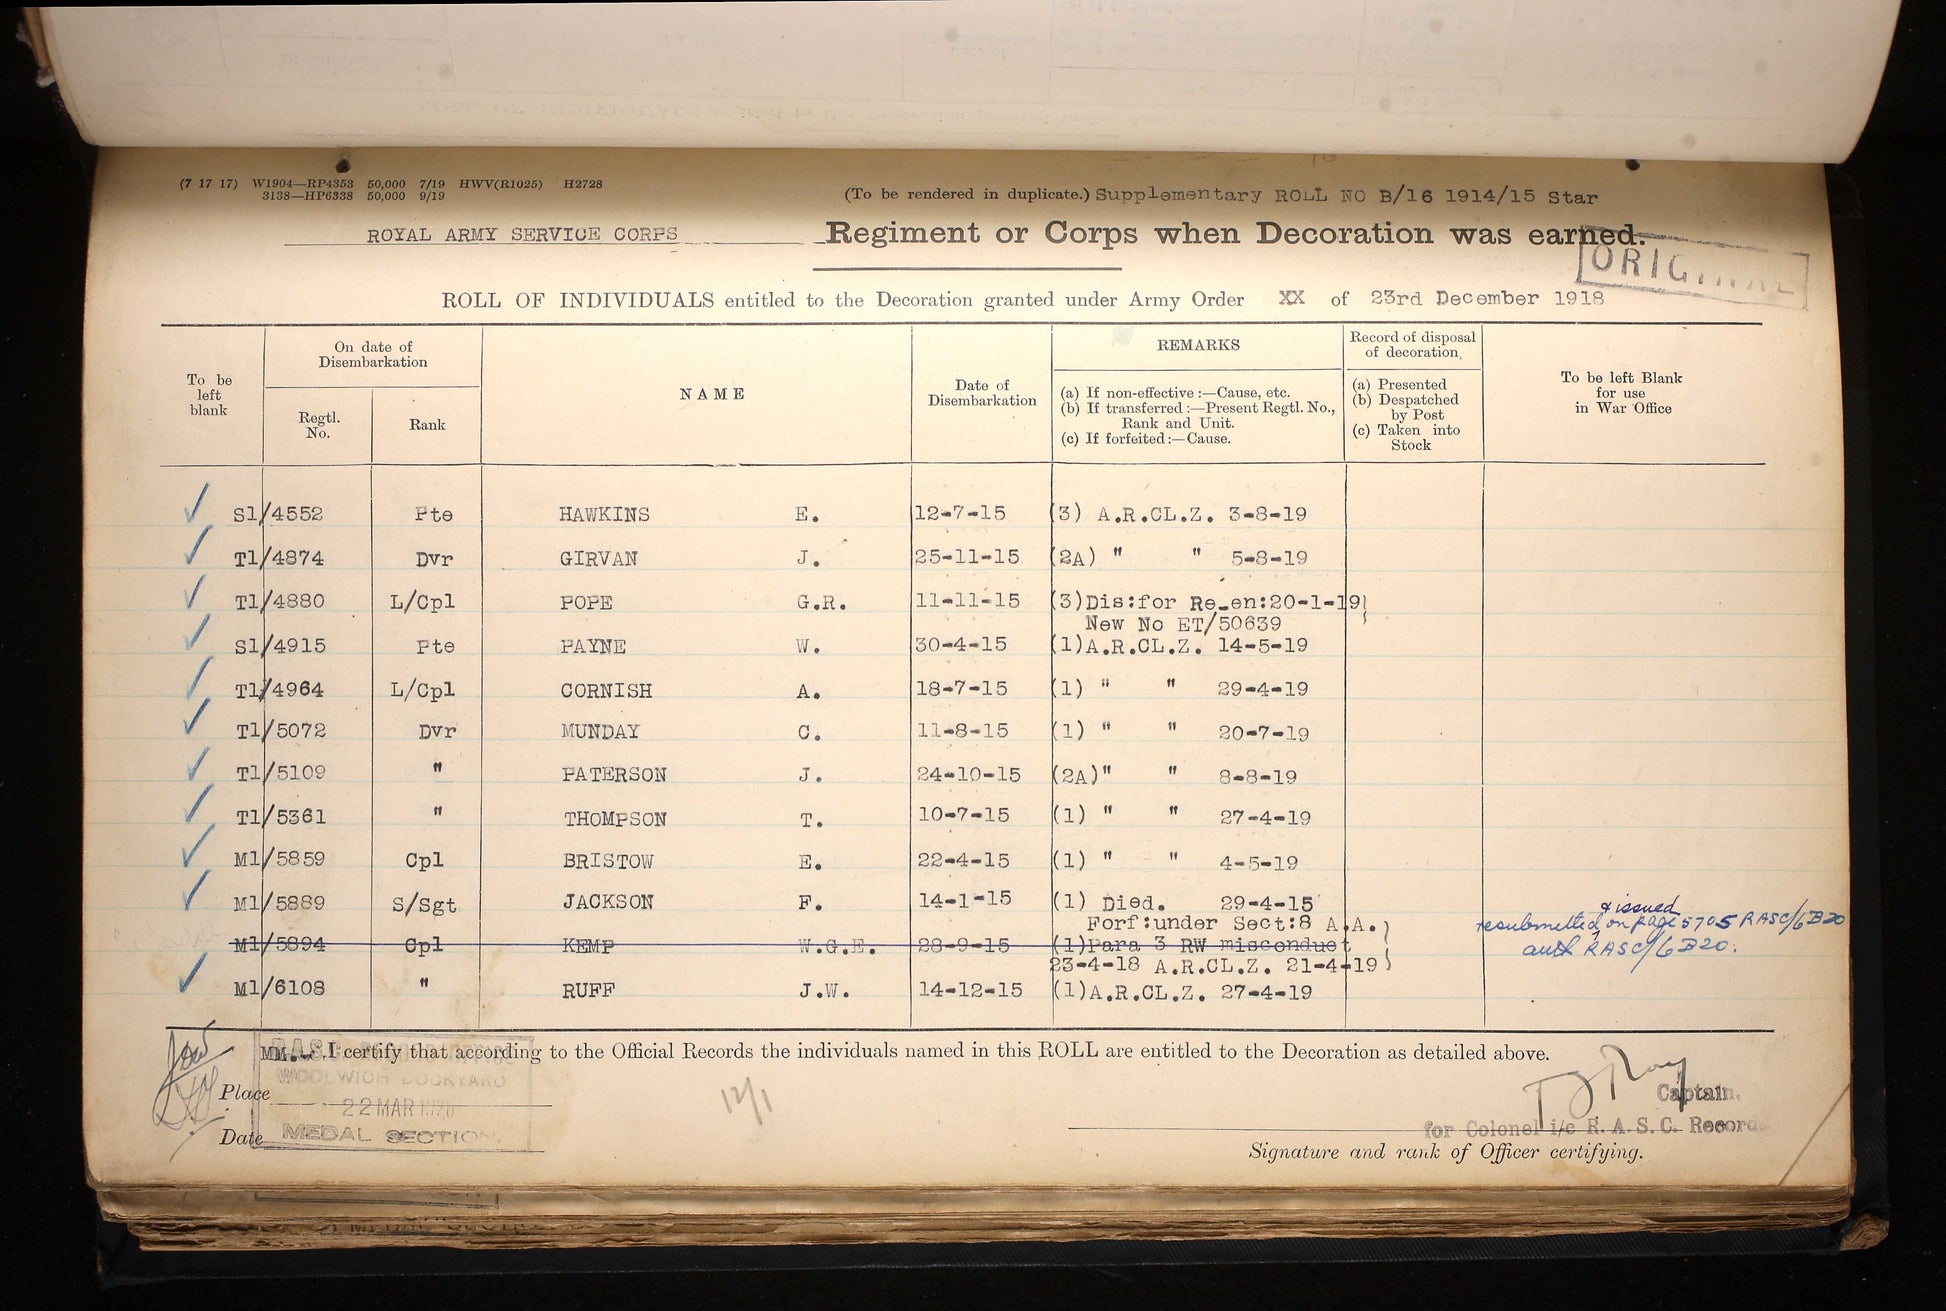 (7 17 17) W1904—RP4353 50,000 7/19 HWV(R1025) H2728
3138—HP6338 50,000 9/19
(To be rendered in duplicate.) Supplementary ROLL NO B/16 1914/15 Star
ROYAL ARMY SERVICE CORPS Regiment or Corps when Decoration was earned.
ORIGINAL
ROLL OF INDIVIDUALS entitled to the Decoration granted under Army Order XX of 23rd December 1918
To be left blank
On date of Disembarkation
Regtl. No.
Rank
NAME
Date of Disembarkation
REMARKS
(a) If non-effective :—Cause, etc.
(b) If transferred :—Present Regtl. No., Rank and Unit.
(c) If forfeited :—Cause.
Record of disposal of decoration.
(a) Presented
(b) Despatched by Post
(c) Taken into Stock
To be left Blank for use in War Office
S1/4552 Pte HAWKINS E. 12-7-15 (3) A.R.CL.Z. 3-8-19
T1/4874 Dvr GIRVAN J. 25-11-15 (2A) " " 5-8-19
T1/4880 L/Cpl POPE G.R. 11-11-15 (3)Dis:for Re-en:20-1-19
New No ET/50639
S1/4915 Pte PAYNE W. 30-4-15 (1)A.R.CL.Z. 14-5-19
T1/4964 L/Cpl CORNISH A. 18-7-15 (1) " " 29-4-19
T1/5072 Dvr MUNDAY C. 11-8-15 (1) " " 20-7-19
T1/5109 " PATERSON J. 24-10-15 (2A)" " 8-8-19
T1/5361 " THOMPSON T. 10-7-15 (1) " " 27-4-19
M1/5859 Cpl BRISTOW E. 22-4-15 (1) " " 4-5-19
M1/5889 S/Sgt JACKSON F. 14-1-15 (1) Died. 29-4-15
Forf:under Sect:8 A.A.
M1/5894 Cpl KEMP W.G.E. 28-9-15 (1)Para 3 RW misconduct
23-4-18 A.R.CL.Z. 21-4-19
& issued
resubmitted on page 5705 RASC/6B20
auth RASC/6B20.
M1/6108 " RUFF J.W. 14-12-15 (1)A.R.CL.Z. 27-4-19
I certify that according to the Official Records the individuals named in this ROLL are entitled to the Decoration as detailed above.
WOOLWICH DOCKYARD
Place
22 MAR 1920
Date
MEDAL SECTION.
12/1
Captain,
for Colonel i/c R.A.S.C. Records
Signature and rank of Officer certifying.